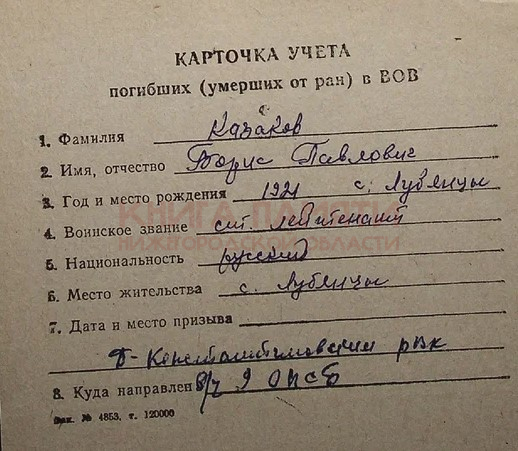 КАРТОЧКА УЧЕТА
погибших (умерших от ран) в ВОВ
1. Фамилия Казаков
2. Имя, отчество Борис Павлович
3. Год и место рождения 1921 с. Лубянцы
4. Воинское звание ст. лейтенант
КНИГА ПАМЯТИ
НИЖЕГОРОДСКОЙ ОБЛАСТИ
5. Национальность русский
6. Место жительства с. Лубянцы
7. Дата и место призыва
Д-Константиновским рвк
8. Куда направлен в/ч 9 ОПСБ
Зак. № 4853, т. 120000